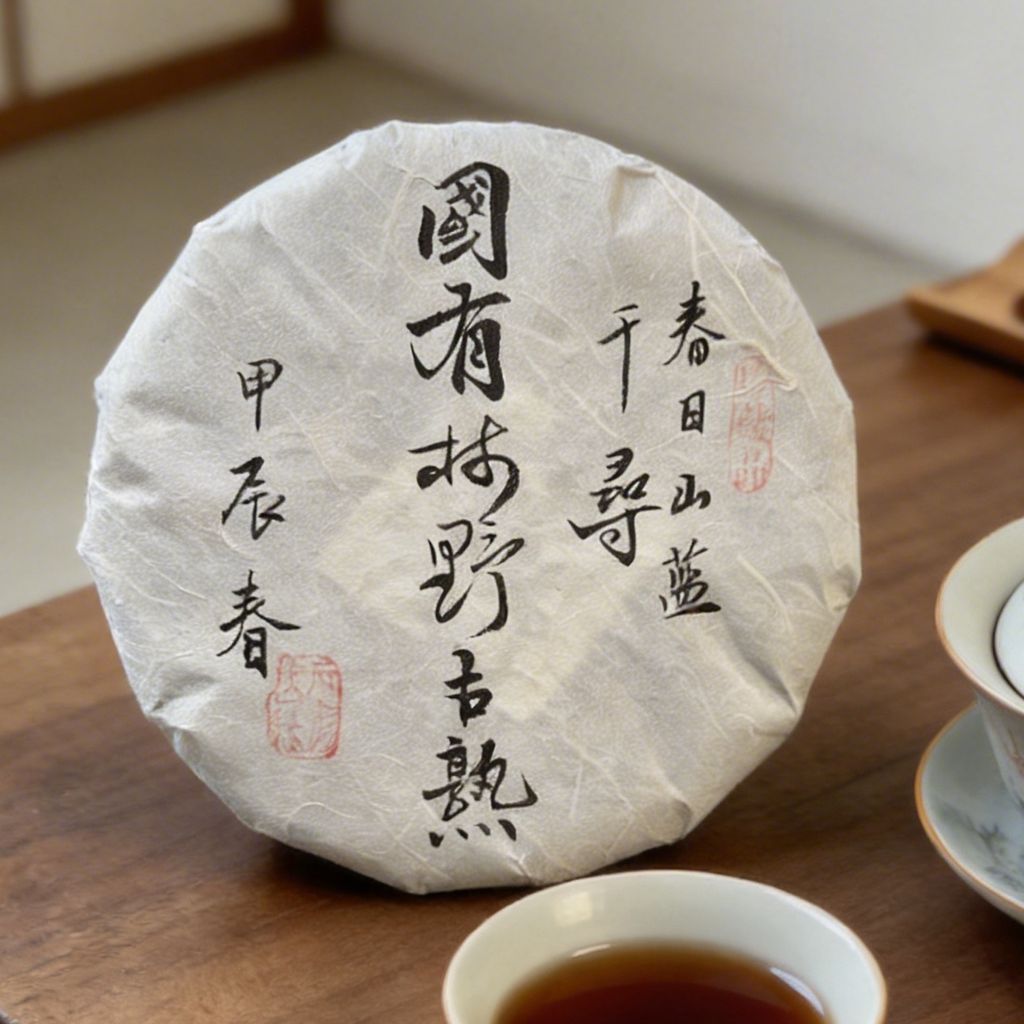 春日山蓝
千尋
國有林野古熟
甲辰春